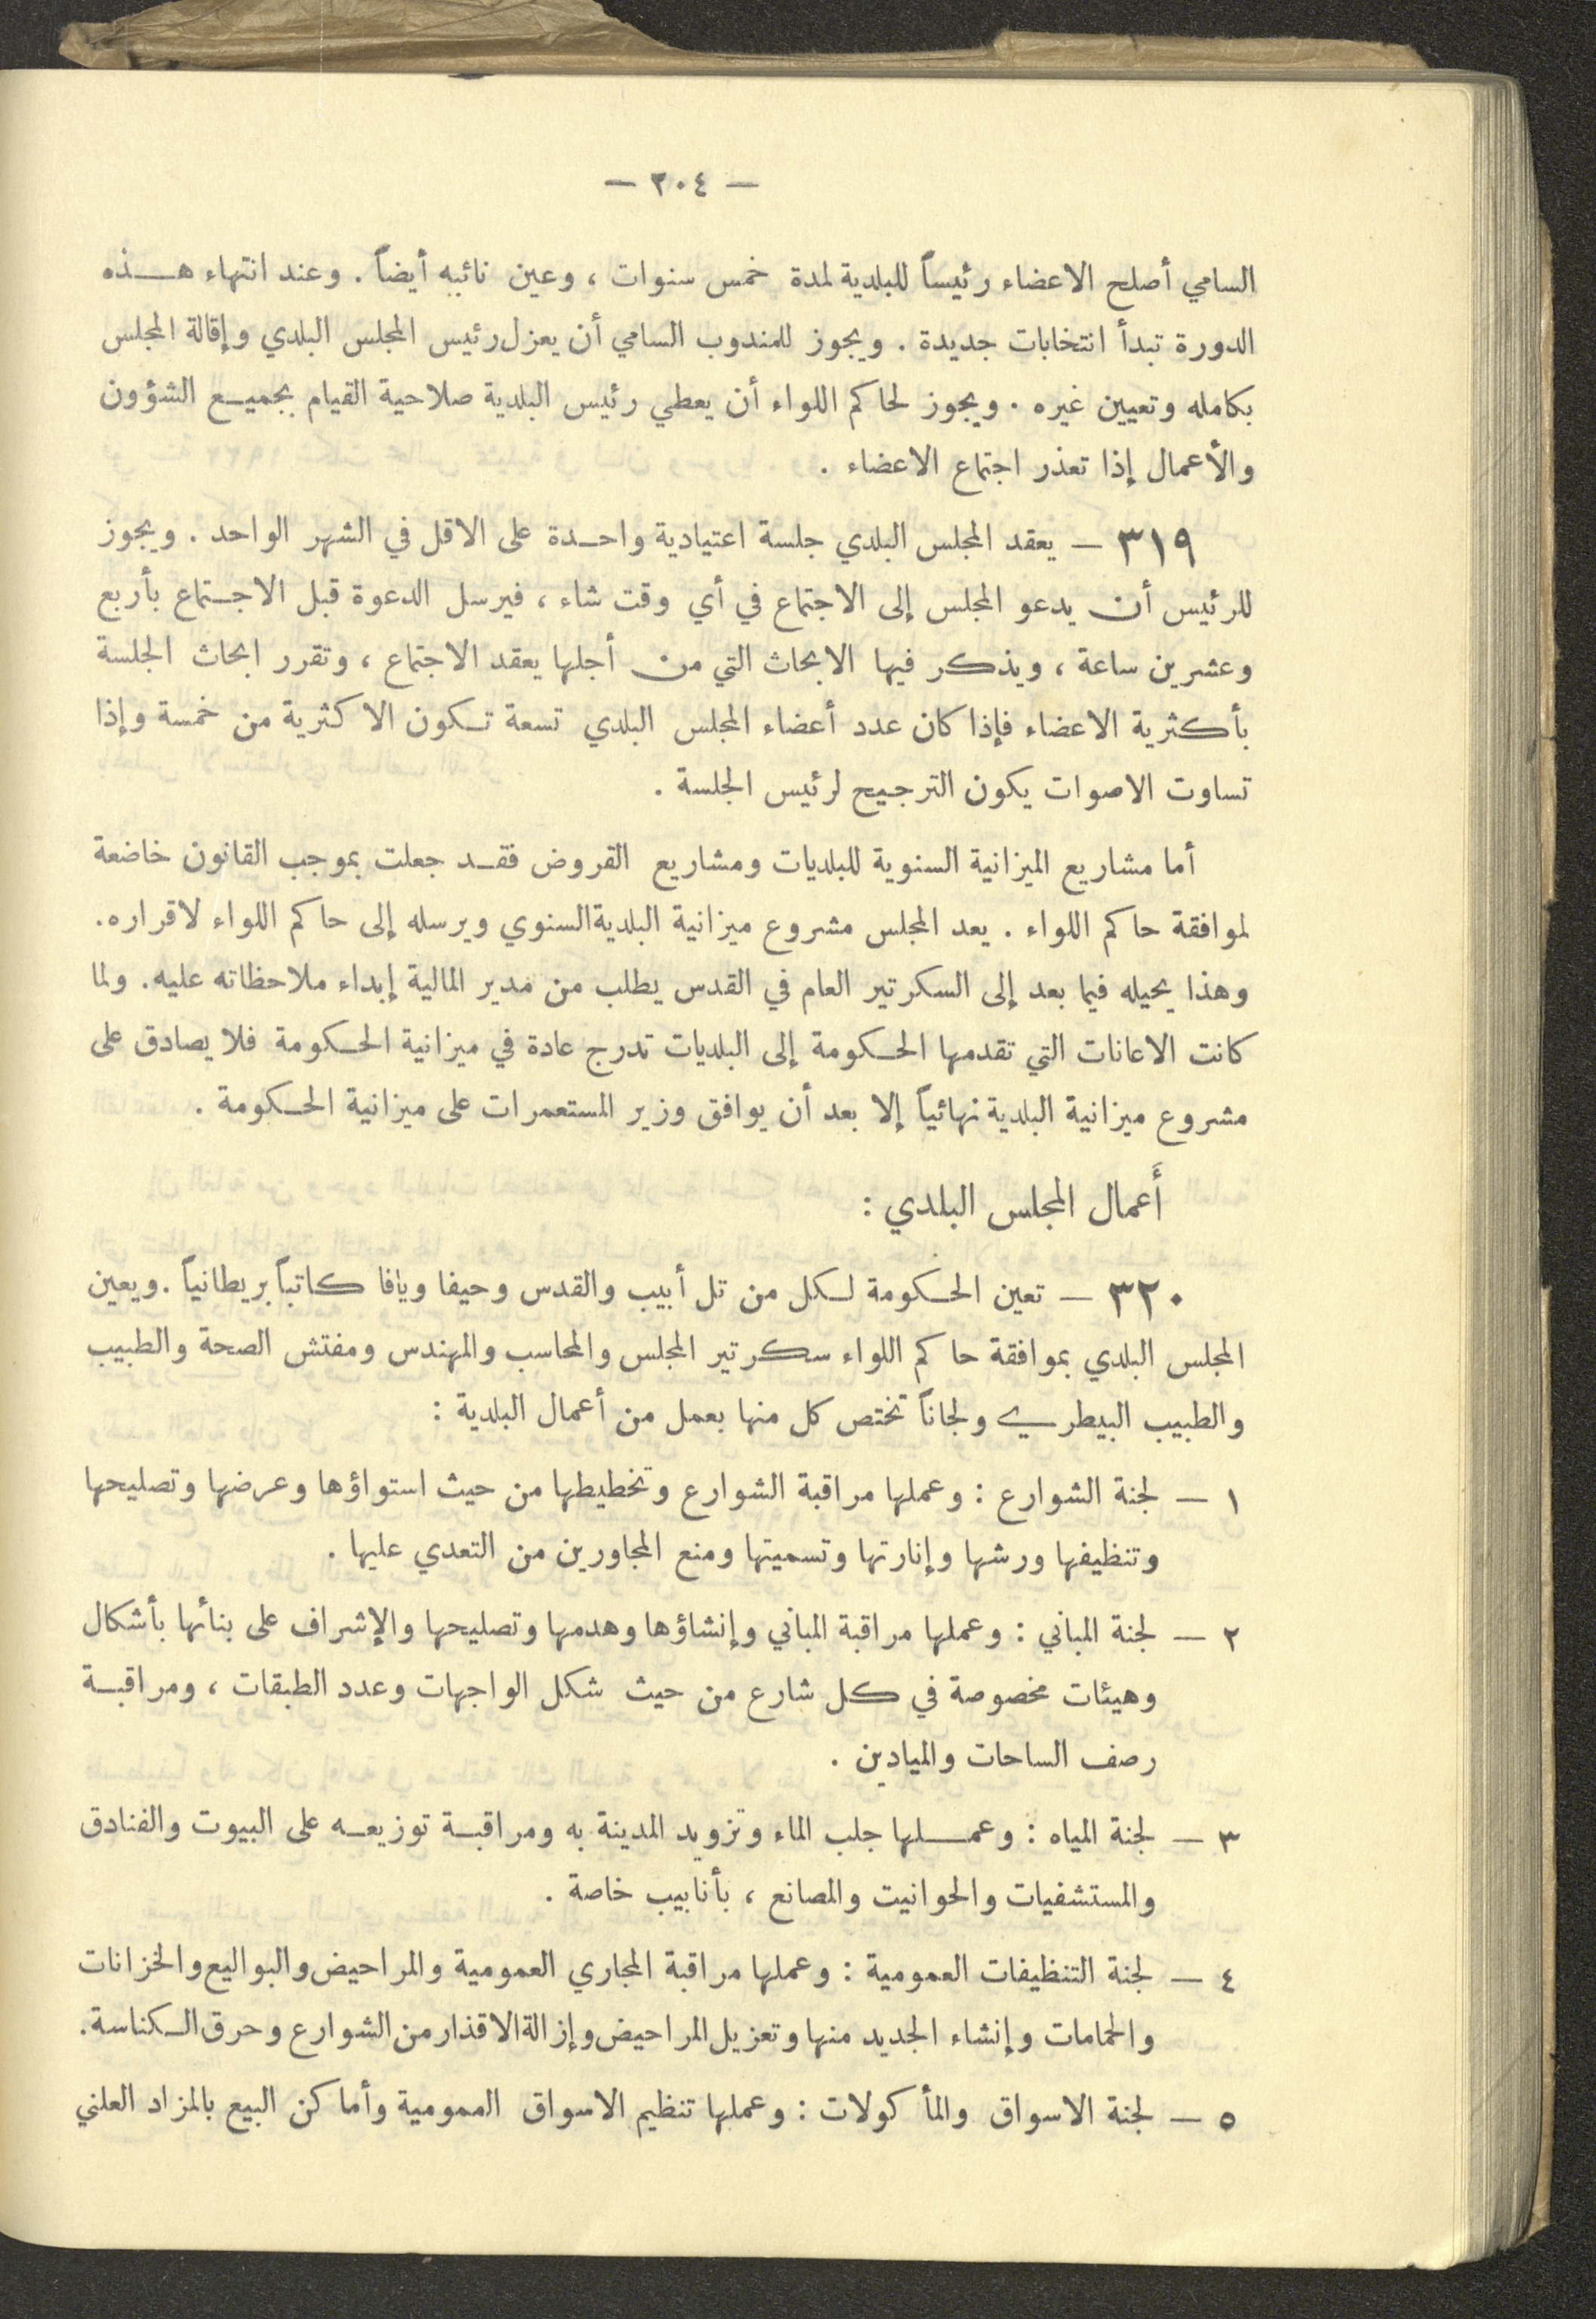 — ٢٠٤ —
السامي أصلح الاعضاء رئيساً للبلدية لمدة خمس سنوات ، وعين نائبه أيضاً . وعند انتهاء هـــذه
الدورة تبدأ انتخابات جديدة . ويجوز للمندوب السامي أن يعزل رئيس المجلس البلدي وإقالة المجلس
بكامله وتعيين غيره . ويجوز لحاكم اللواء أن يعطي رئيس البلدية صلاحية القيام بجميـع الشؤون
والأعمال إذا تعذر اجتماع الاعضاء .
٣١٩ — يعقد المجلس البلدي جلسة اعتيادية واحـدة على الاقل في الشهر الواحد . ويجوز
للرئيس أن يدعو المجلس إلى الاجتماع في أي وقت شاء ، فيرسل الدعوة قبل الاجـتماع بأربع
وعشرين ساعة ، ويذكر فيها الابحاث التي من أجلها يعقد الاجتماع ، وتقرر ابحاث الجلسة
بأكثرية الاعضاء فإذا كان عدد أعضاء المجلس البلدي تسعة تكون الاكثرية من خمسة وإذا
تساوت الاصوات يكون الترجيح لرئيس الجلسة .
أما مشاريع الميزانية السنوية للبلديات ومشاريع القروض فقـد جعلت بموجب القانون خاضعة
لموافقة حاكم اللواء . يعد المجلس مشروع ميزانية البلدية السنوي ويرسله إلى حاكم اللواء لاقراره.
وهذا يحيله فيما بعد إلى السكرتير العام في القدس يطلب من مدير المالية إبداء ملاحظاته عليه. ولما
كانت الاعانات التي تقدمها الحكومة إلى البلديات تدرج عادة في ميزانية الحكومة فلا يصادق على
مشروع ميزانية البلدية نهائياً إلا بعد أن يوافق وزير المستعمرات على ميزانية الحكومة .
أَعمال المجلس البلدي :
٣٢٠ — تعين الحكومة لكل من تل أبيب والقدس وحيفا ويافا كاتباً بريطانياً . ويعين
المجلس البلدي بموافقة حاكم اللواء سكرتير المجلس والمحاسب والمهندس ومفتش الصحة والطبيب
والطبيب البيطري ولجاناً تختص كل منها بعمل من أعمال البلدية :
١ — لجنة الشوارع : وعملها مراقبة الشوارع وتخطيطها من حيث استواؤها وعرضها وتصليحها
وتنظيفها ورشها وإنارتها وتسميتها ومنع المجاورين من التعدي عليها .
٢ — لجنة المباني : وعملها مراقبة المباني وإنشاؤها وهدمها وتصليحها والإشراف على بنائها بأشكال
وهيئات مخصوصة في كل شارع من حيث شكل الواجهات وعدد الطبقات ، ومراقبـة
رصف الساحات والميادين .
٣ — لجنة المياه : وعمـــلها جلب الماء وتزويد المدينة به ومراقبـة توزيعـه على البيوت والفنادق
والمستشفيات والحوانيت والمصانع ، بأنابيب خاصة .
٤ — لجنة التنظيفات العمومية : وعملها مراقبة المجاري العمومية والمراحيض والبواليع والخزانات
والحمامات وإنشاء الجديد منها وتعزيل المراحيض وإزالة الاقذار من الشوارع وحرق الكناسة.
٥ — لجنة الاسواق والمأكولات : وعملها تنظيم الاسواق العمومية وأماكن البيع بالمزاد العلني